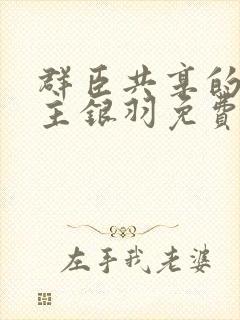 群臣共享的
主银羽免费
左手我老婆